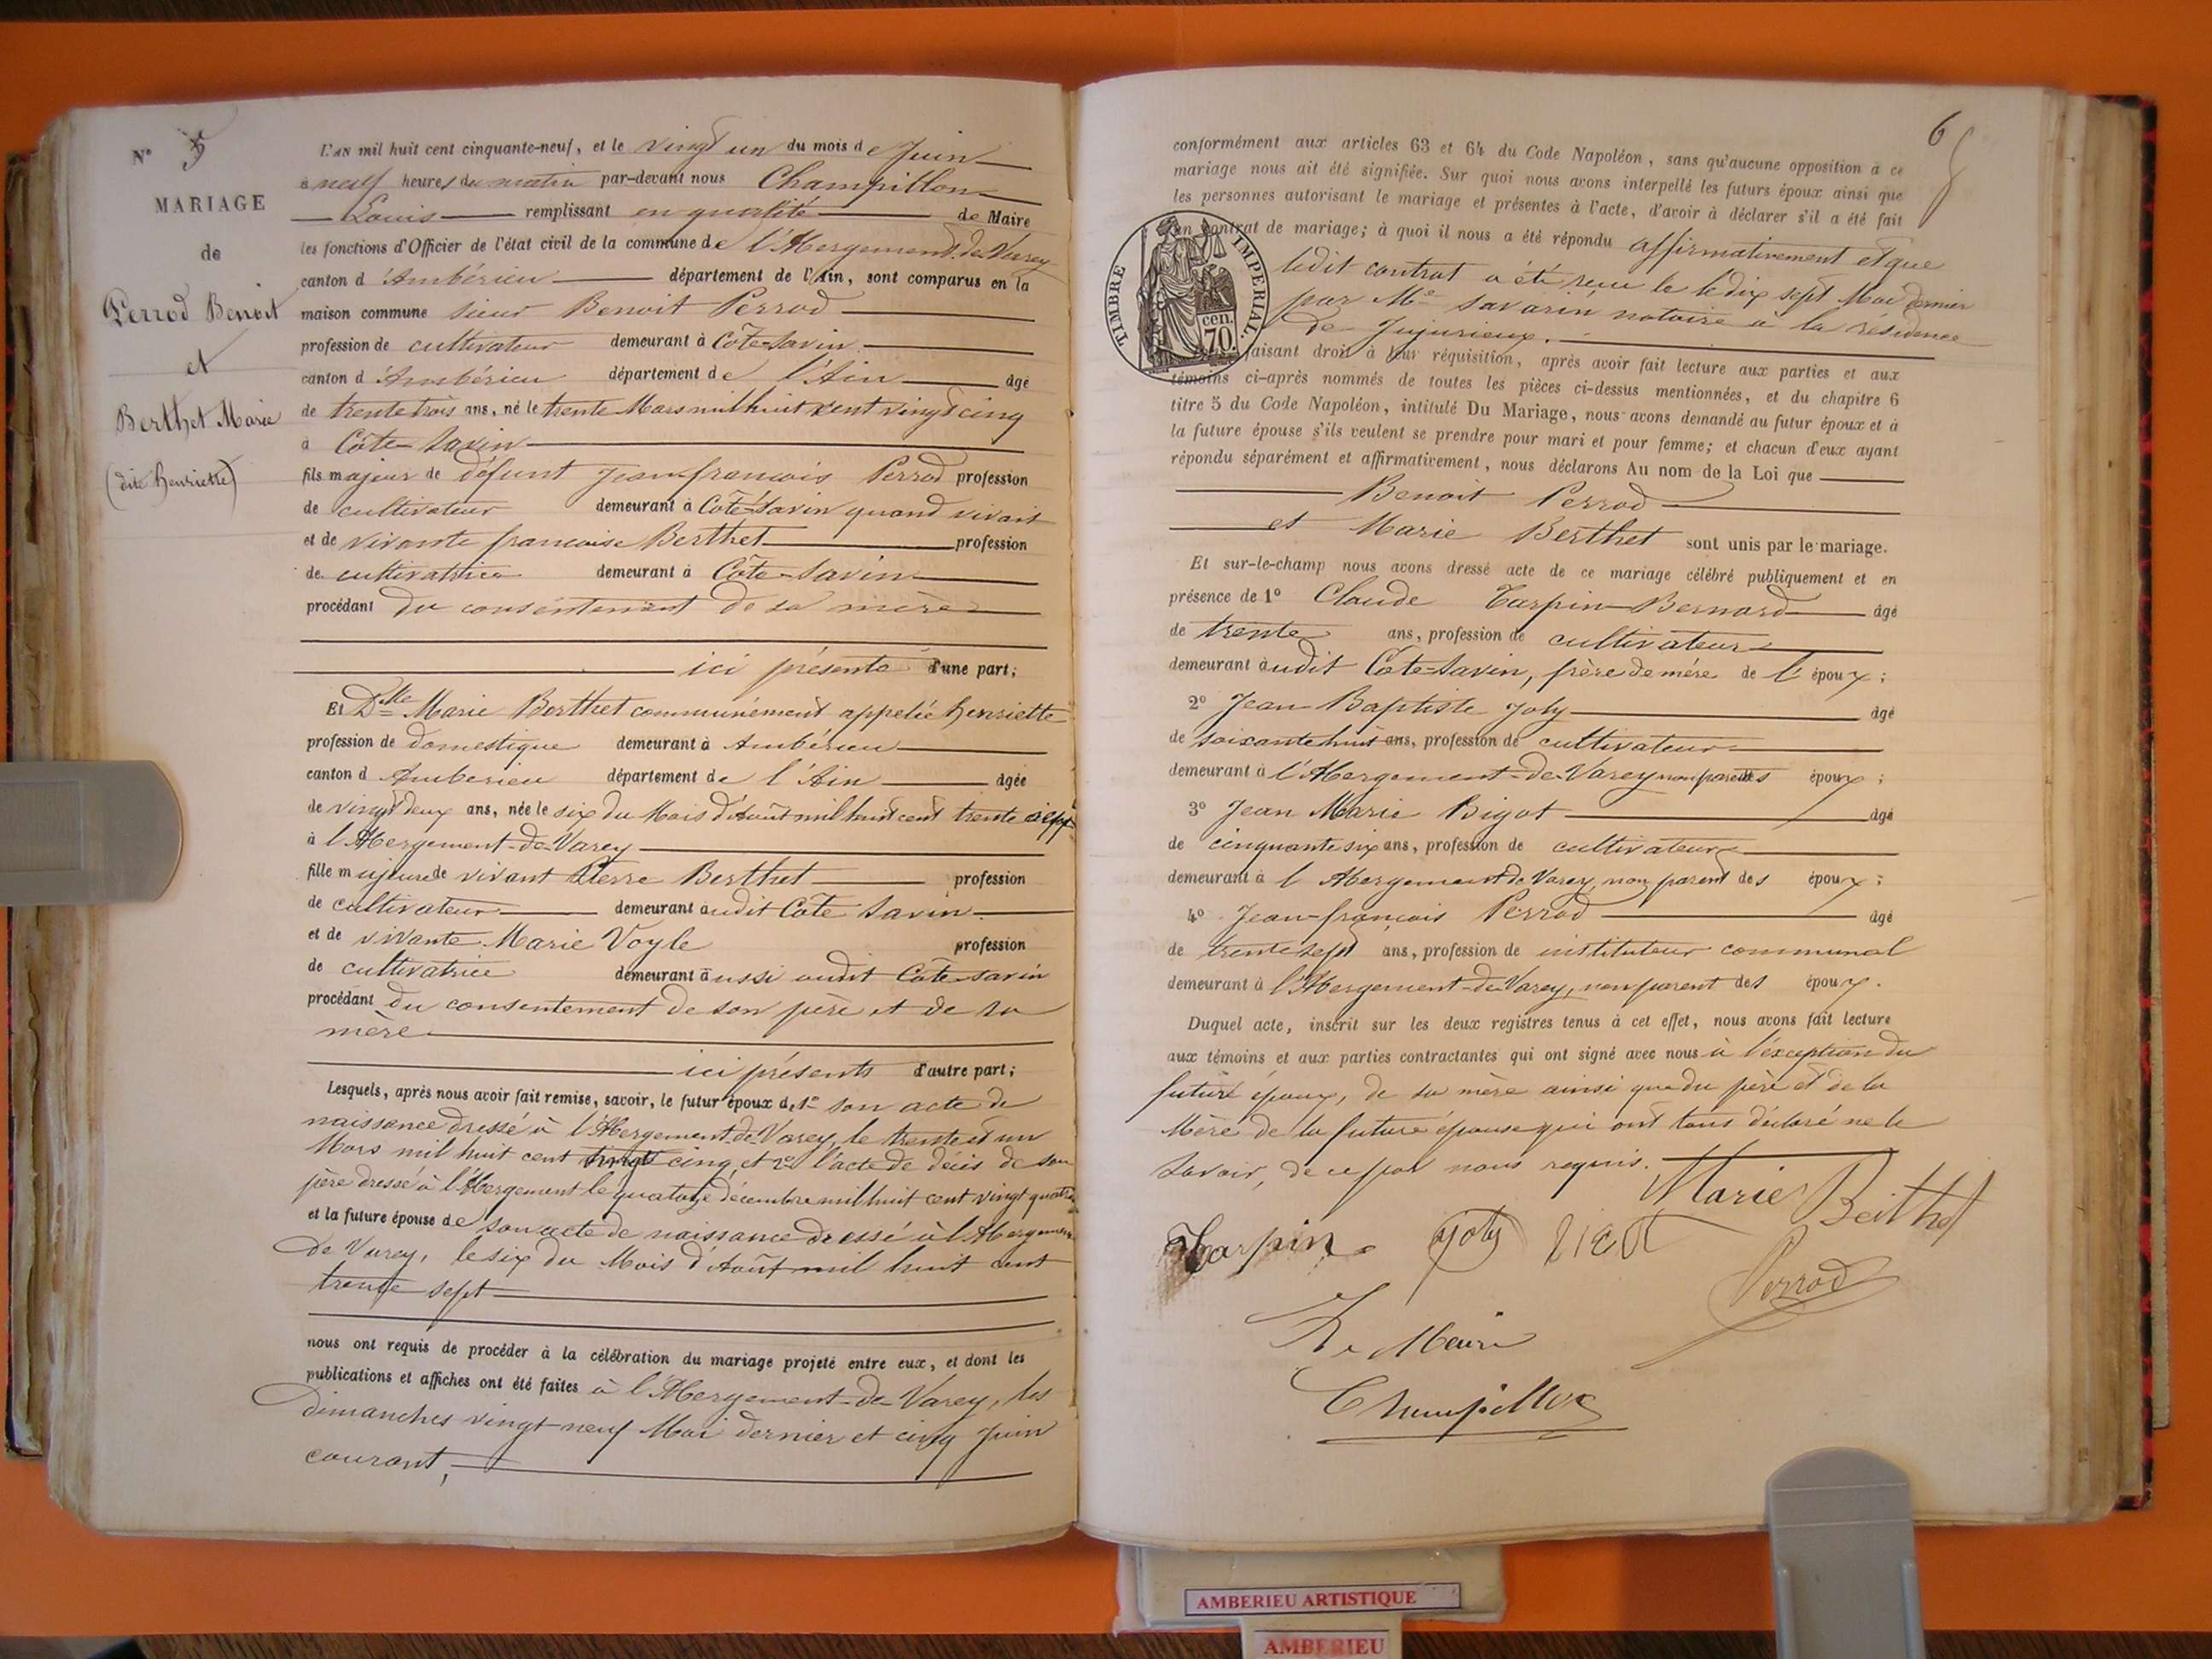 N° 5
MARIAGE
de
Perrod Benoit
et
Berthet Marie
(dite henriette)
L'AN mil huit cent cinquante-neuf, et le vingt un du mois de Juin
à neuf heures du matin par-devant nous Champillon
Louis remplissant en qualité de Maire
les fonctions d'Officier de l'état civil de la commune de l'Abergement-de-Varey
canton d'Ambérieu département de l'Ain, sont comparus en la
maison commune sieur Benoit Perrod
profession de cultivateur demeurant à Côte-Savin
canton d'Ambérieu département de l'Ain âgé
de trente trois ans, né le trente Mars mil huit cent vingt cinq
à Côte-Savin
fils majeur de défunt Jean-francois Perrod profession
de cultivateur demeurant à Côte-Savin quand vivait
et de vivante francoise Berthet profession
de cultivatrice demeurant à Côte-Savin
procédant du consentement de sa mère
ici présente d'une part;
Et Dlle Marie Berthet communément appelée henriette
profession de domestique demeurant à Ambérieu
canton d'Amberieu département de l'Ain âgée
de vingt deux ans, née le six du Mois d'Août mil huit cent trente sept
à l'Abergement-de-Varey
fille majeure de vivant Pierre Berthet profession
de cultivateur demeurant audit Côte Savin
et de vivante Marie Voyle profession
de cultivatrice demeurant aussi audit Côte-Savin
procédant du consentement de son père et de sa
mère
ici présents d'autre part;
Lesquels, après nous avoir fait remise, savoir, le futur époux de 1° son acte de
naissance dressé à l'Abergement-de-Varey, le trente et un
Mars mil huit cent vingt cinq, et 2° l'acte de décès de son
père dressé à l'Abergement le quatorze décembre mil huit cent vingt quatre
et la future épouse de son acte de naissance dressé à l'Abergement
de Varey, le six du Mois d'Août mil huit cent
trente sept
nous ont requis de procéder à la célébration du mariage projeté entre eux, et dont les
publications et affiches ont été faites à l'Abergement-de-Varey, les
dimanches vingt-neuf Mai dernier et cinq Juin
courant,
6
conformément aux articles 63 et 64 du Code Napoléon, sans qu'aucune opposition à ce
mariage nous ait été signifiée. Sur quoi nous avons interpellé les futurs époux ainsi que
les personnes autorisant le mariage et présentes à l'acte, d'avoir à déclarer s'il a été fait
un contrat de mariage; à quoi il nous a été répondu affirmativement et que
ledit contrat a été reçu le le dix sept Mai dernier
par Me Savarin notaire à la résidence
de Jujurieux.
TIMBRE IMPERIAL.
70 cen.
faisant droit à leur réquisition, après avoir fait lecture aux parties et aux
témoins ci-après nommés de toutes les pièces ci-dessus mentionnées, et du chapitre 6
titre 5 du Code Napoléon, intitulé Du Mariage, nous avons demandé au futur époux et à
la future épouse s'ils veulent se prendre pour mari et pour femme; et chacun d'eux ayant
répondu séparément et affirmativement, nous déclarons Au nom de la Loi que
Benoit Perrod
et Marie Berthet sont unis par le mariage.
Et sur-le-champ nous avons dressé acte de ce mariage célébré publiquement et en
présence de 1° Claude Tarpin-Bernard âgé
de trente ans, profession de cultivateur
demeurant audit Côte-Savin, frère de mère de l'époux;
2° Jean Baptiste Joly âgé
de soixante huit ans, profession de cultivateur
demeurant à l'Abergement-de-Varey non parent des époux;
3° Jean Marie Bigot âgé
de cinquante six ans, profession de cultivateur
demeurant à l'Abergement de Varey, non parent des époux;
4° Jean-françois Perrod âgé
de trente sept ans, profession de instituteur communal
demeurant à l'Abergement-de-Varey, non parent des époux.
Duquel acte, inscrit sur les deux registres tenus à cet effet, nous avons fait lecture
aux témoins et aux parties contractantes qui ont signé avec nous à l'exception du
futur époux, de sa mère ainsi que du père et de la
Mère de la future épouse qui ont tous déclaré ne le
Savoir, de ce par nous requis.
Marie Berthet
Tarpin Joly
Perrod
Le Maire
Champillon
AMBERIEU ARTISTIQUE
AMBERIEU